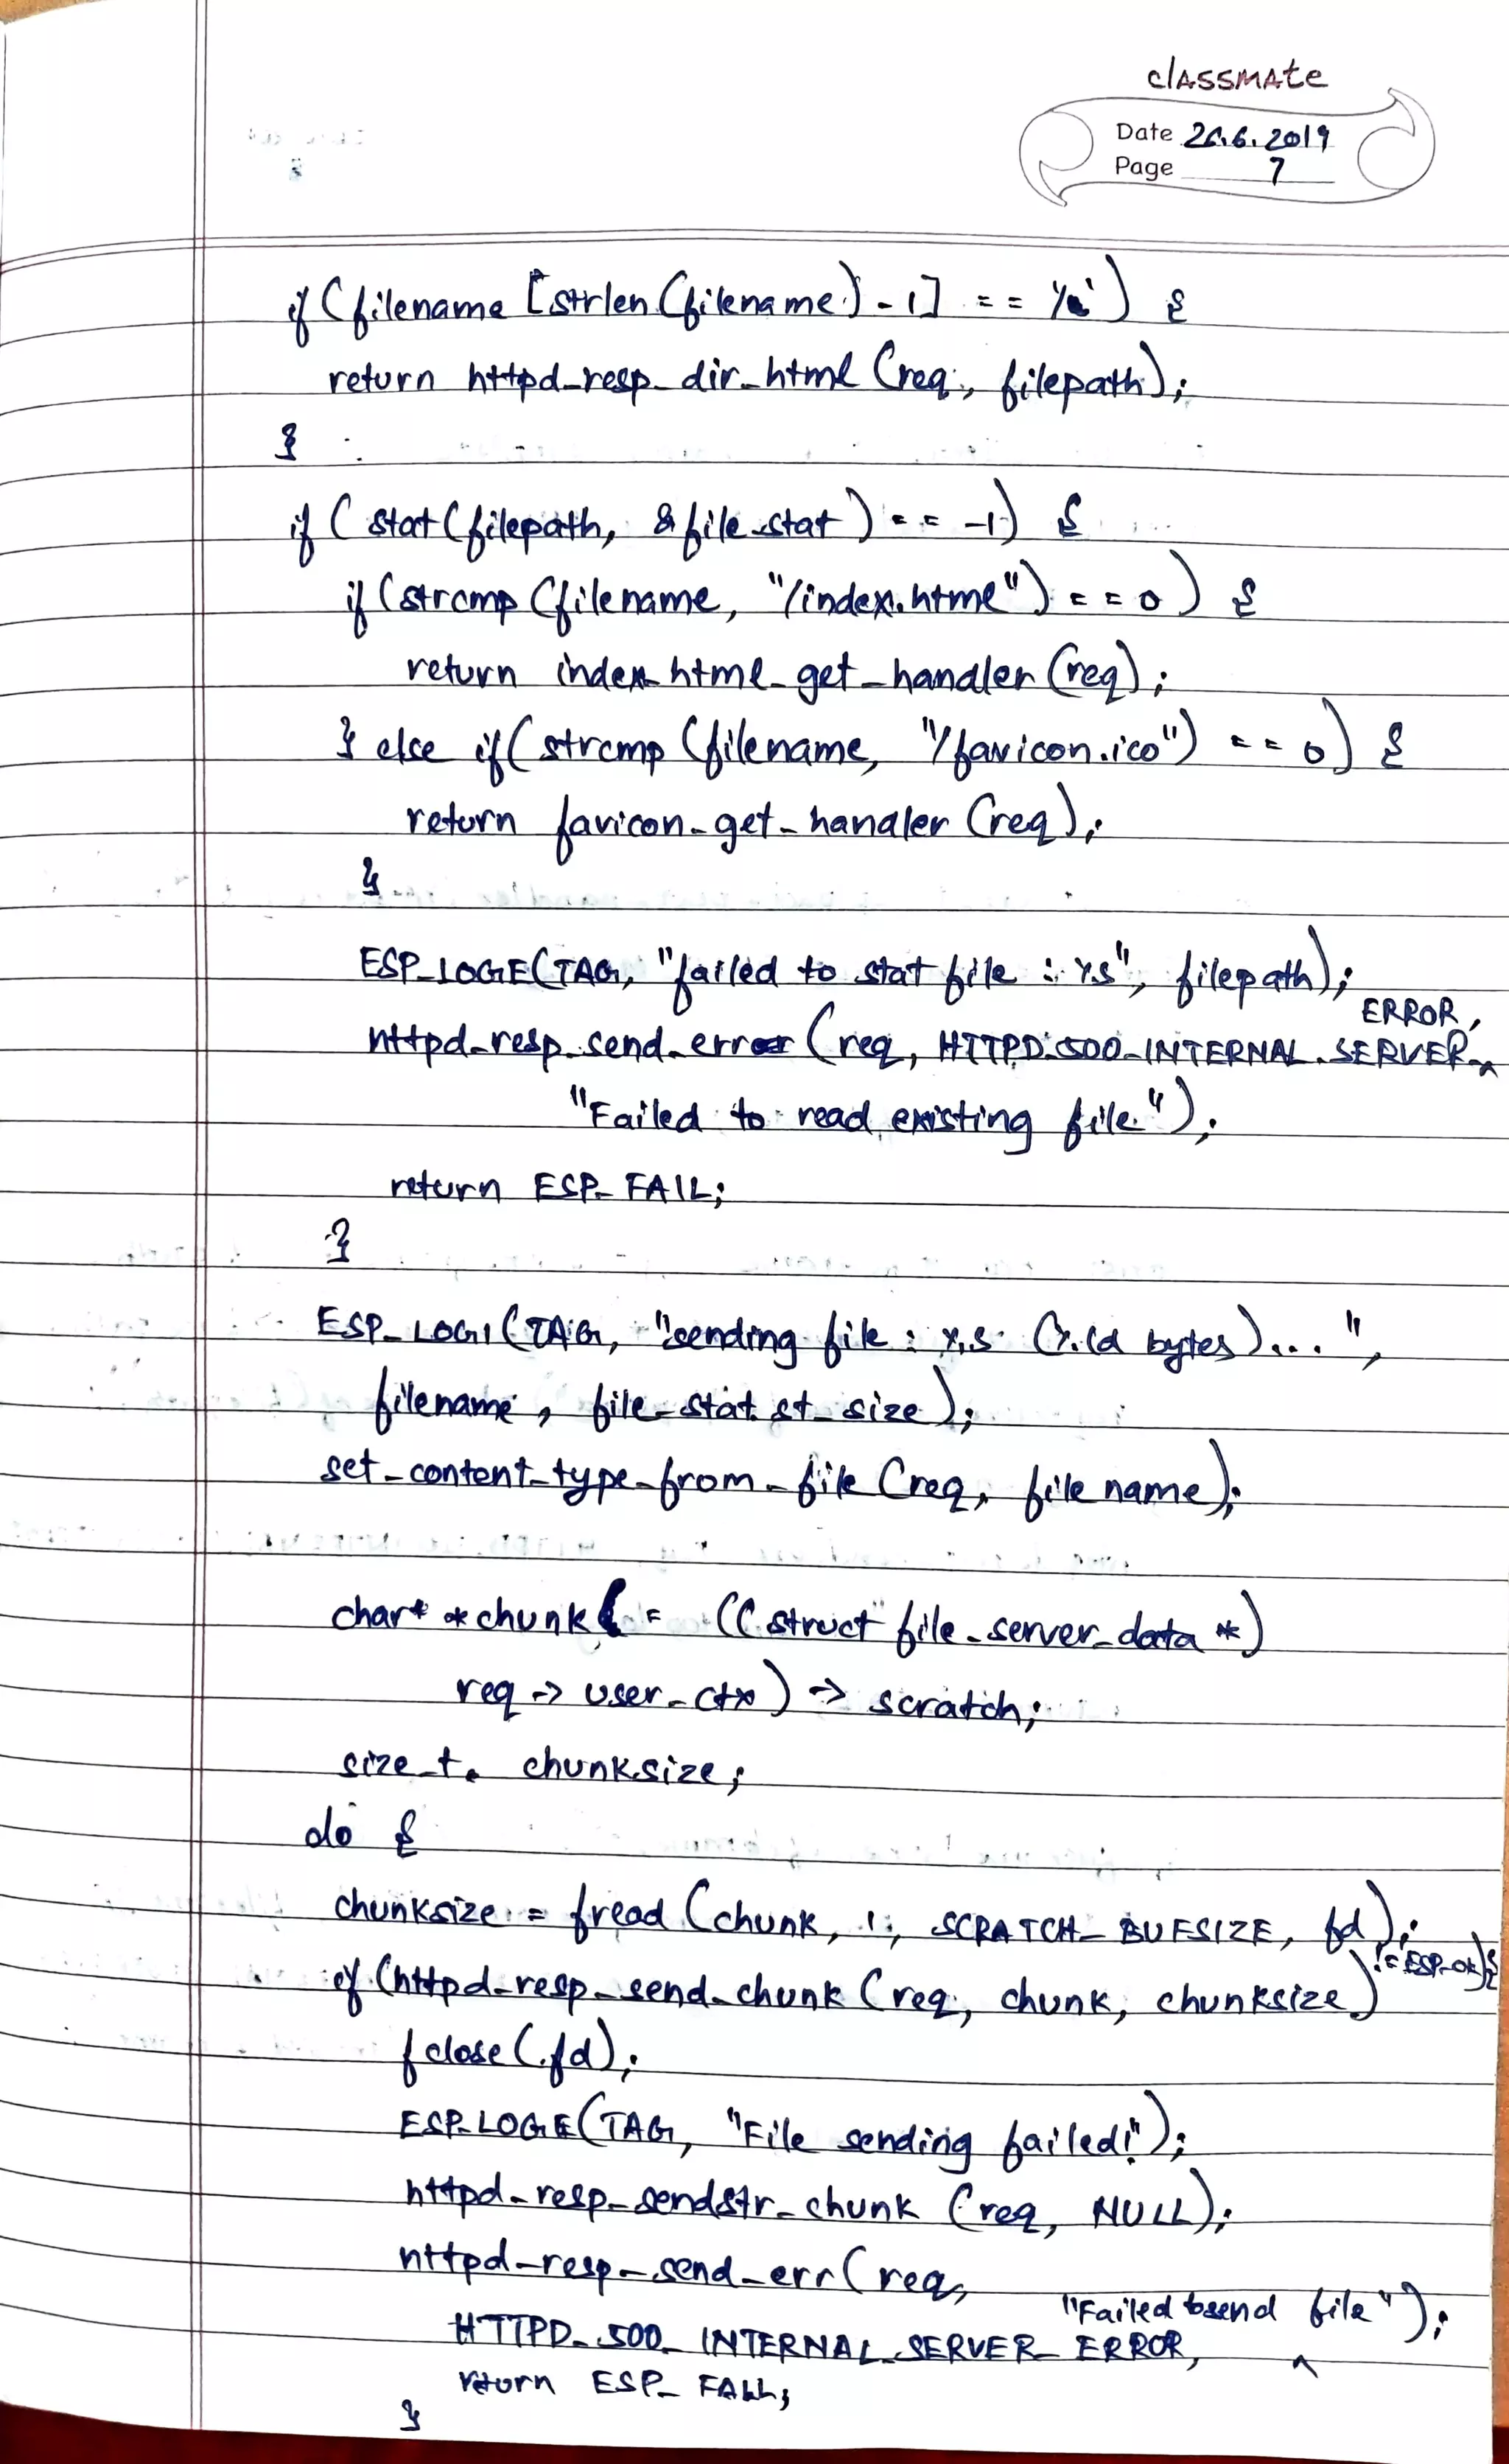 classmate
Date 26.6.2019
Page 7
if (filename [strlen (filename) - 1] == '/') {
return httpd_resp_dir_html (req, filepath);
}
if (stat (filepath, &file_stat) == -1) {
if (strcmp (filename, "/index.html") == 0) {
return index_html_get_handler (req);
} else if (strcmp (filename, "/favicon.ico") == 0) {
return favicon_get_handler (req);
}
ESP_LOGE(TAG, "failed to stat file : %s", filepath);
httpd_resp_send_err (req, HTTPD_500_INTERNAL_SERVER_ERROR,
"Failed to read existing file");
return ESP_FAIL;
}
ESP_LOGI (TAG, "sending file : %s (%ld bytes)...",
filename, file_stat.st_size);
set_content_type_from_file (req, filename);
char* *chunk = ((struct file_server_data *)
req -> user_ctx) -> scratch;
size_t chunksize;
do {
chunksize = fread (chunk, 1, SCRATCH_BUFSIZE, fd);
if (httpd_resp_send_chunk (req, chunk, chunksize) != ESP_OK) {
fclose (fd);
ESP_LOGE (TAG, "File sending failed!");
httpd_resp_sendstr_chunk (req, NULL);
httpd_resp_send_err (req,
HTTPD_500_INTERNAL_SERVER_ERROR, "Failed to send file");
return ESP_FAIL;
}